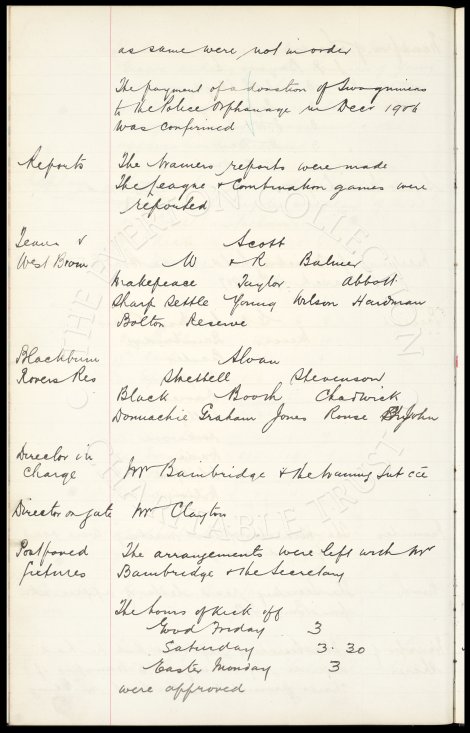 as same were not in order
The payment of a donation of two guineas
to the Police Orphanage in Decr 1906
was confirmed
Reports The Trainers reports were made
The League & Combination games were
reported
Teams v Scott
West Brom W & R Balmer
Makepeace Taylor Abbott
Sharp Settle Young Wilson Hardman
Bolton Reserve
Blackburn Sloan
Rovers Res Strettell Stevenson
Black Booth Chadwick
Donnachie Graham Jones Rouse
Director in
charge Mr Bainbridge & the Training Sub
Director on gate Mr Clayton
Postponed The arrangements were left with Mr
fixtures Bainbridge & the Secretary
The hours of kick off
Good Friday 3
Saturday 3.30
Easter Monday 3
were approved
THE EVERTON COLLECTION
CHARITABLE TRUST